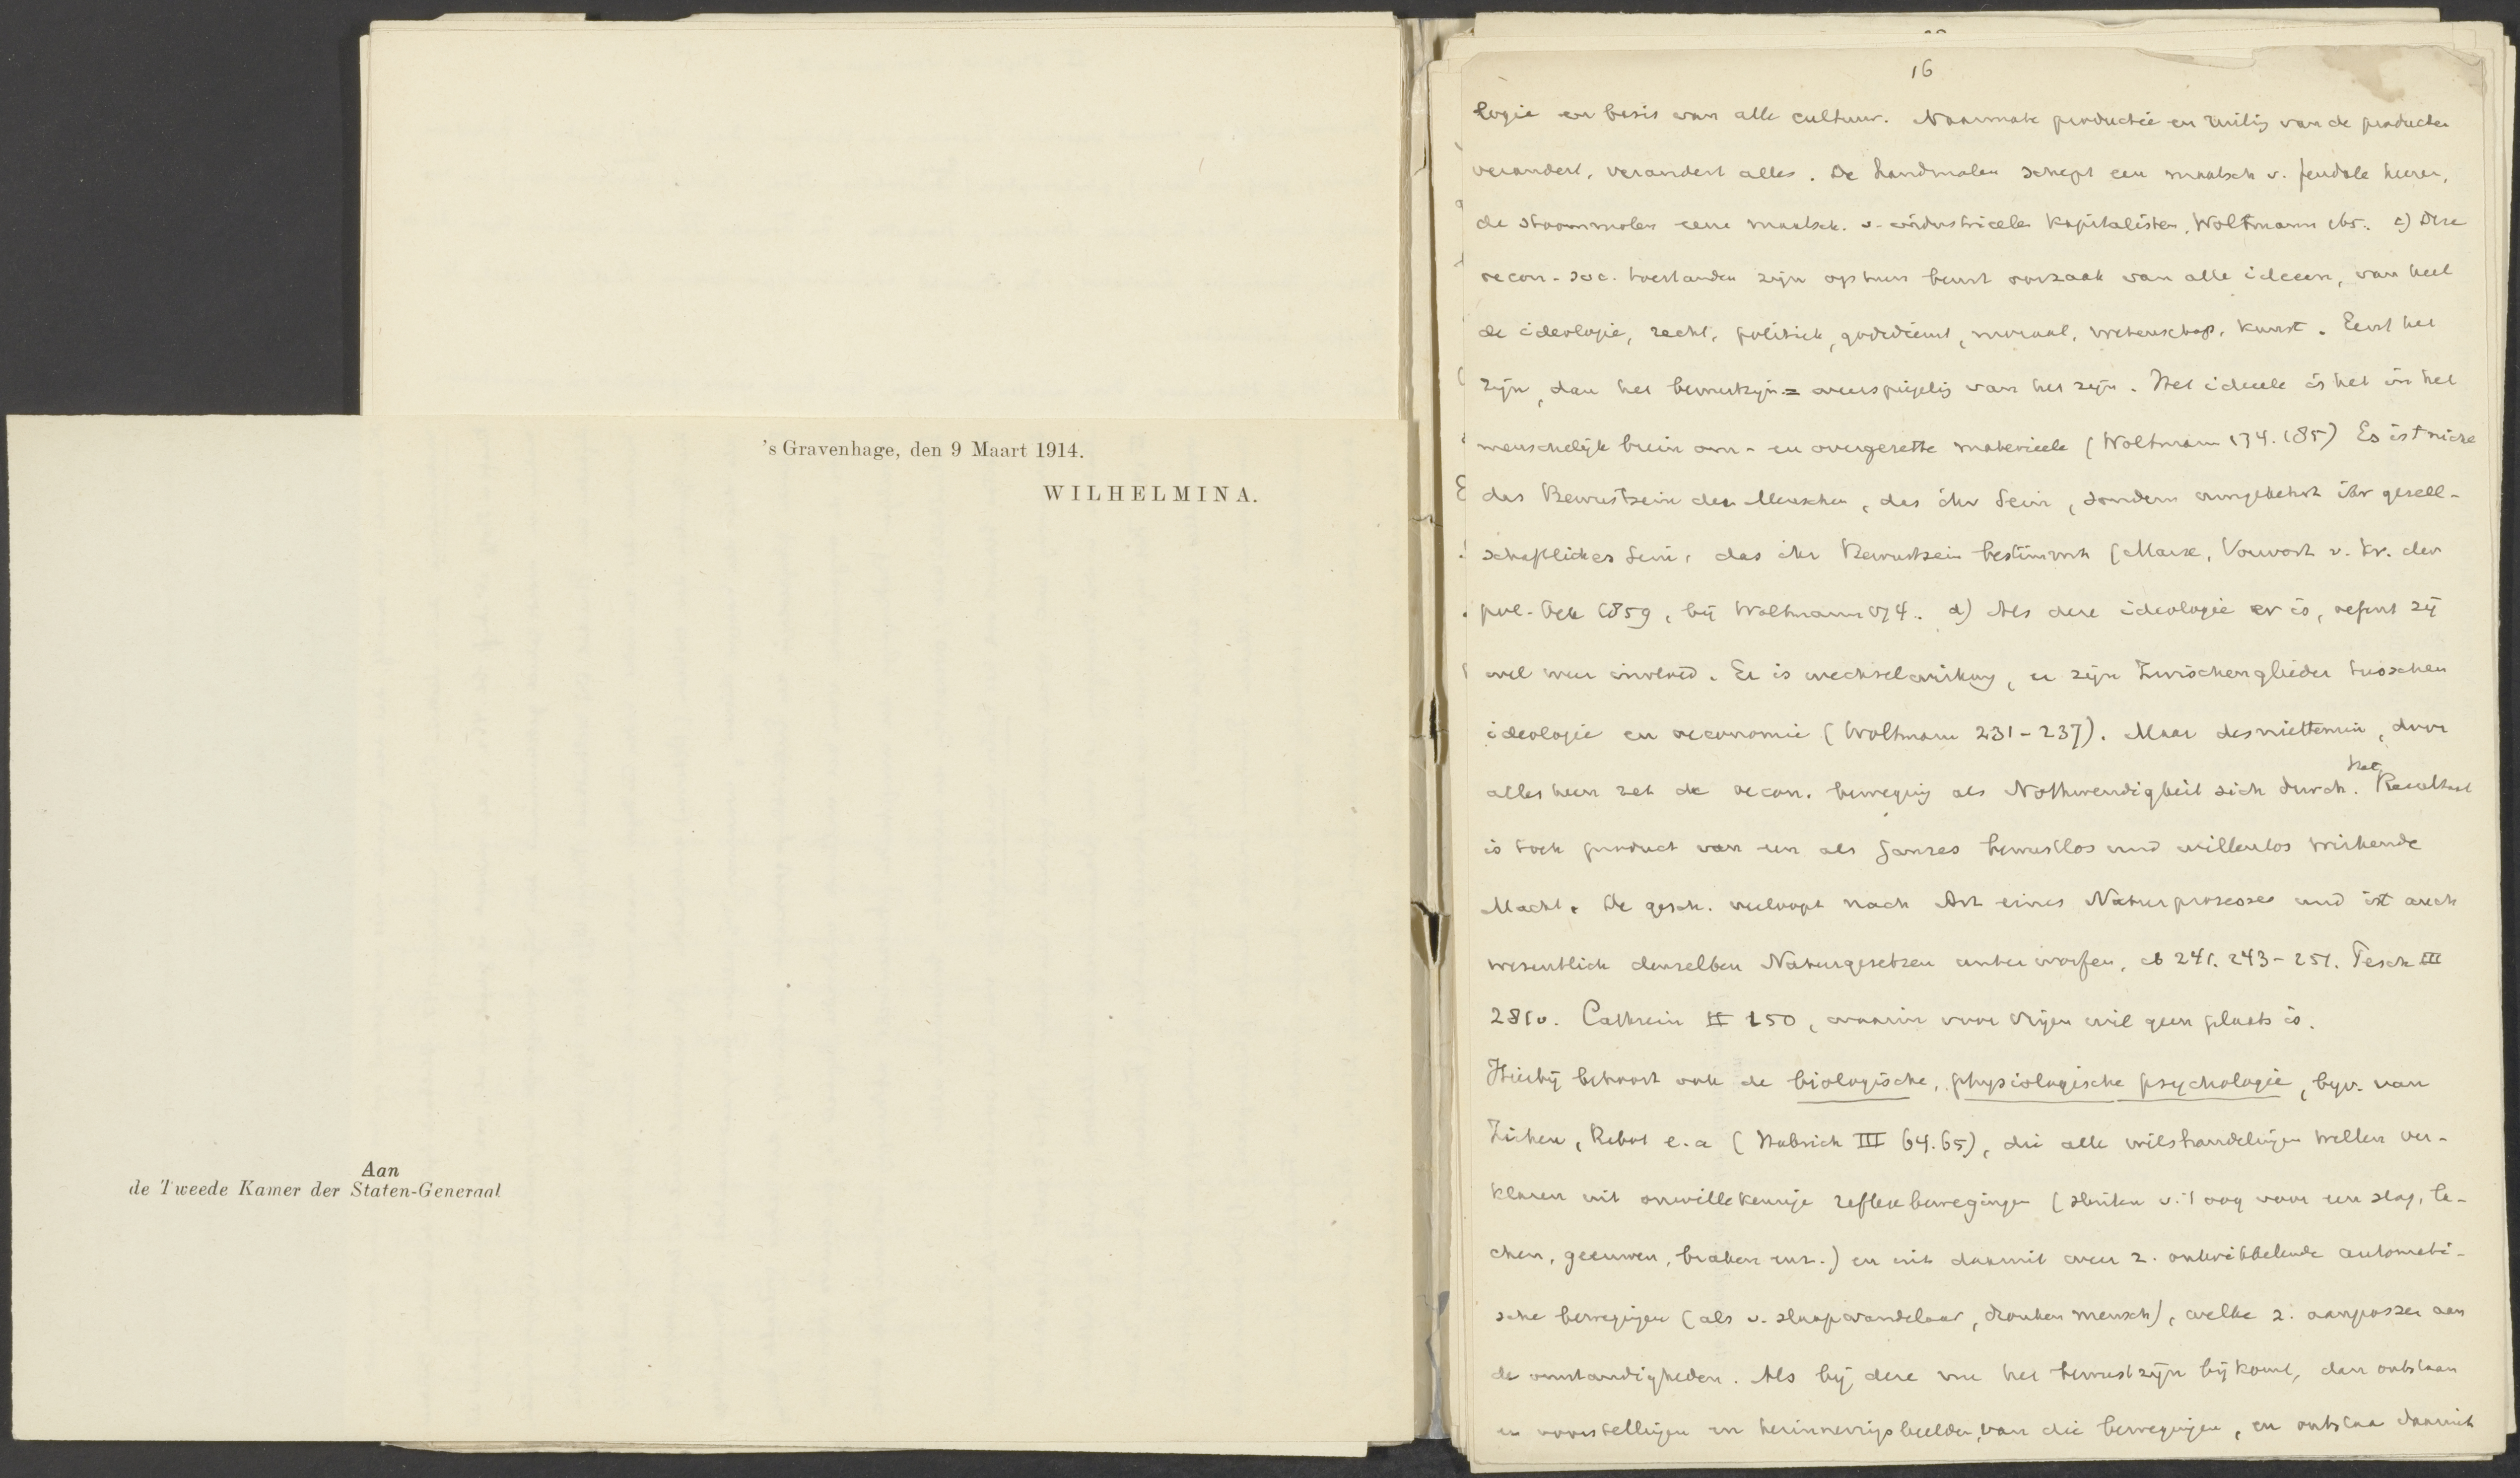 's Gravenhage, den 9 Maart 1914.
WILHELMINA.
Aan
de Tweede Kamer der Staten-Generaal
16
logie en basis van alle cultuur. Naarmate productie en ruilig van de producten
verandert, verandert alles. De handmolen schept een maatsch. v. feudale heeren,
de stoommolen eene maatsch. v. industrieele kapitalisten, Woltmann ib. c) Deze
oecon-soc. toestanden zijn op hun beurt oorzaak van alle ideeen, van heel
de ideologie, recht, politiek, godsdienst, moraal, wetenschap, kunst. Eerst het
zijn, dan het bewustzijn = weerspiegelig van het zijn. Het ideele is het in het
menschelijk brein om- en overgezette materieele (Woltmann 134. 185) Es ist nicht
das Bewustsein der Menschen, das ihr Sein, sondern umgekehrt ihr gesell-
schaftliches Sein, das ihr Bewustsein bestimmt (Marx, Vorwort v. Kr. der
pol. Oek 1859, bij Woltmann 174. d) Als deze ideologie er is, oefent zij
wel weer invloed. Er is wechselwirkung, er zijn Zwischenglieder tusschen
ideologie en oeconomie (Woltmann 231-237). Maar desniettemin, door
alles heen zet de oecon. beweging als Nothwendigkeit sich durch. Het Resultaat
is toch product van een als Ganzes bewustlos und willenlos wirkende
Macht. De gesch. verloopt nach Art eines Naturprozesses und ist auch
wesentlich denselben Naturgesetzen unterworfen, ib 241. 243-251. Pesch III
281v. Cathrein II 150, waarin voor vrijen wil geen plaats is.
Hierbij behoort ook de biologische, physiologische psychologie, bijv. van
Ziehen, Ribot e.a (Habrich III 64.65), die alle wilshandelingen willen ver-
klaren uit onwillekeurige reflexbewegingen (sluiten v. 't oog voor een slag, la-
chen, geeuwen, braken enz.) en uit daarmit weer z. ontwikkelende automati-
sche bewegingen (als v. slaapwandelaar, dronken mensch), welke z. aanpassen aan
de omstandigheden. Als bij deze nu het bewustzijn bijkomt, dan ontstaan
er voorstellingen en herinneringsbeelden, van die bewegingen, en ontstaa daaruit